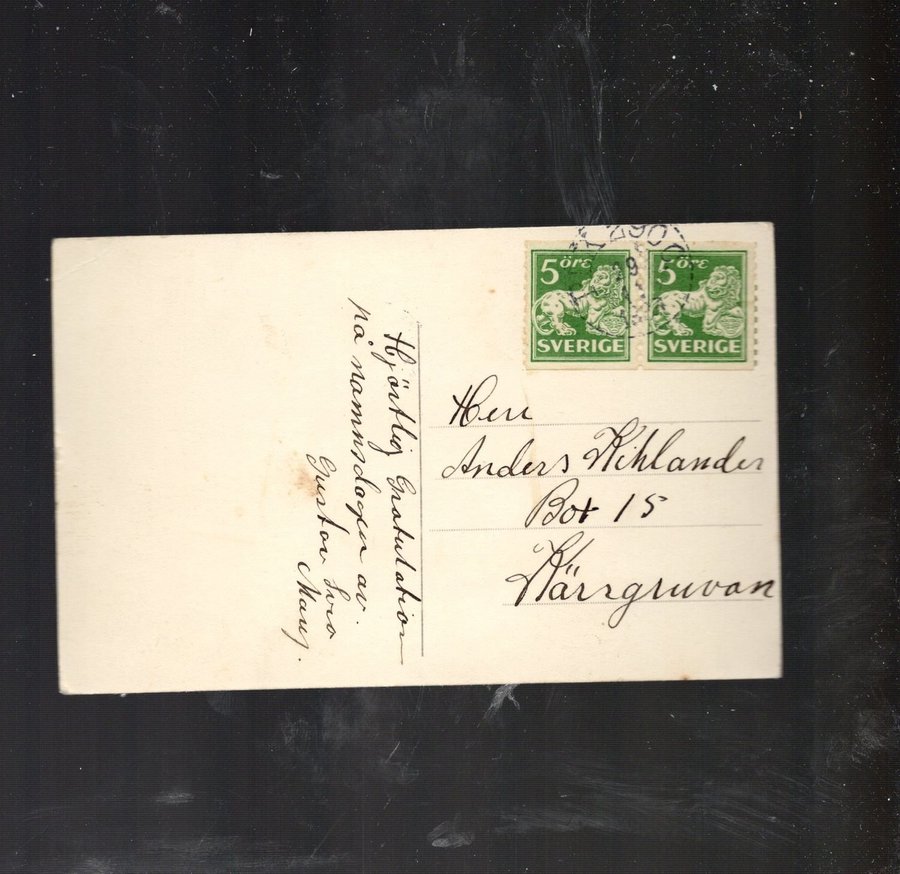 5 öre
SVERIGE
5 öre
SVERIGE
2900
Herr
Anders Kihlander
Box 15
Kärrgruvan
Hjärtlig Gratulation
på namnsdagen av.
Gustav